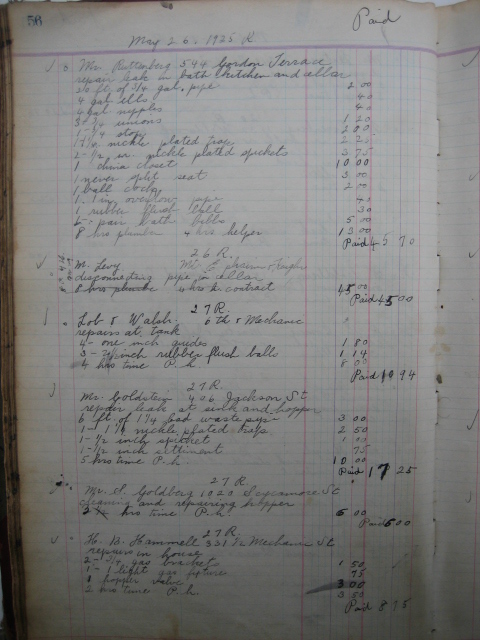 56
Paid
May 26. 1925 R.
Mr. Ruttenberg 594 Gordon Terrace
repair leak in bath kitchen and cellar
20 ft of 3/4 gal. pipe 2 00
4 gal ells 40
4 gal nipples 40
3 - 3/4 unions 1 20
1 - 3/4 stop
1 1/2 nickle plated trap
2 - 1/2 in. nickle plated spickets 3 75
1 china closet 10 00
1 never split seat 3 00
1 ball cock
1 - 1 in overflow pipe
1 rubber flush ball 30
pair bath bibbs 5 00
8 hrs plumber 4 hrs helper 13 00
Paid 45 70
26 R.
M. Levy
disconnecting pipe in cellar
contract 45 00
Paid 45 00
27 R.
Lob & Walsh. 6th & Mechanic
repairs at tank
4 - one inch guides 1 80
3 - inch rubber flush balls 1 14
4 hrs time P. h. 8 00
Paid 94
27 R.
Mr. Goldstein 406 Jackson St
repair leak at sink and hopper
6 ft of 1 1/4 lead waste pipe 3 00
1 - 1 1/4 nickle plated trap 2 50
1 - 1/2 inch spicket 1 00
1 - 1/2 inch 75
5 hrs time P. h. 10 00
Paid 17 25
27 R.
Mr. S. Goldberg 1020 Sycamore St
cleaning and repairing hopper
hrs time P. h 6 00
Paid 6 00
27 R.
H. B. Hammell 331 N Mechanic St
repairs in house
2 - 3/4 gas bracket 1 50
1 - 1 light gas fixture 75
1 hopper valve 3 00
2 hrs time P. h. 3 50
Paid 8 75